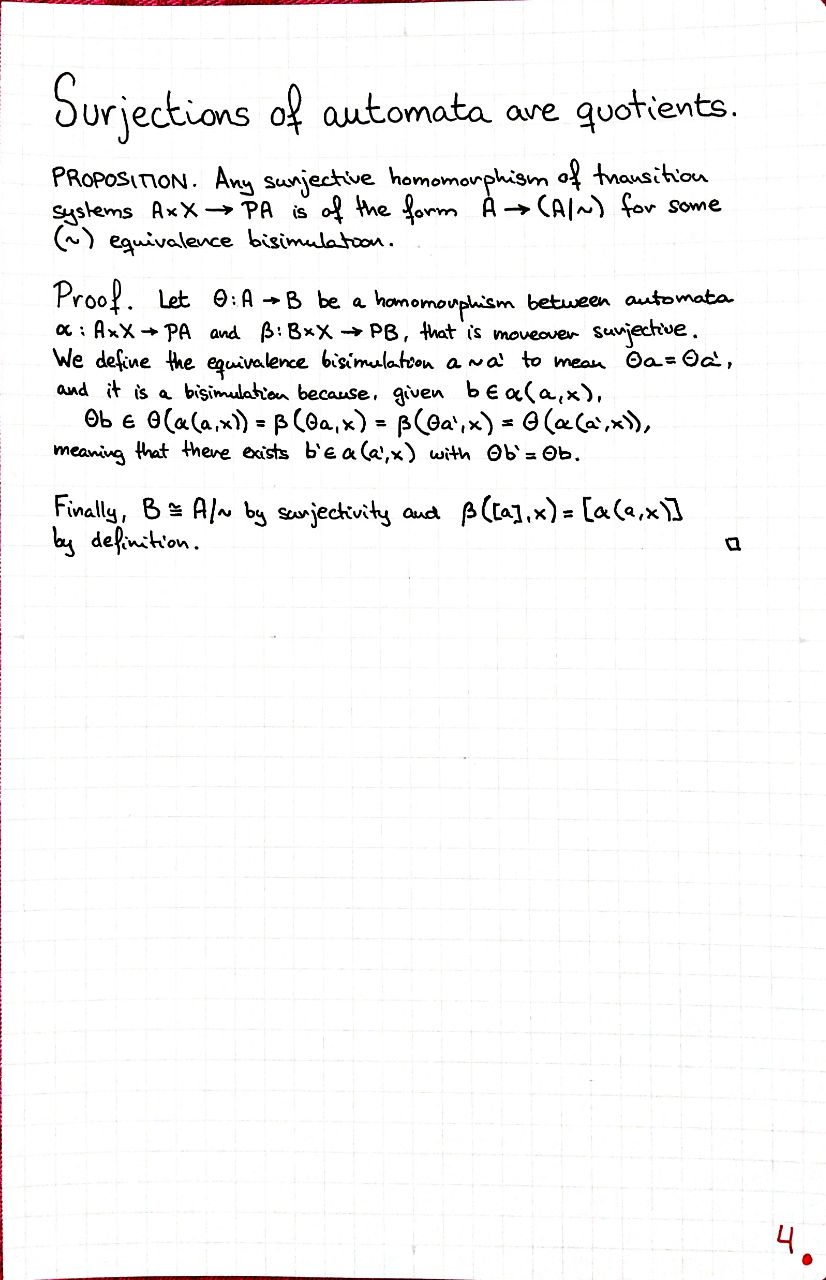 Surjections of automata are quotients.
PROPOSITION. Any surjective homomorphism of transition
systems A×X → PA is of the form A → (A/~) for some
(~) equivalence bisimulation.
Proof. Let Θ:A → B be a homomorphism between automata
α : A×X → PA and β : B×X → PB, that is moreover surjective.
We define the equivalence bisimulation a ~ a' to mean Θa = Θa',
and it is a bisimulation because, given b ∈ α(a,x),
Θb ∈ Θ(α(a,x)) = β(Θa,x) = β(Θa',x) = Θ(α(a',x)),
meaning that there exists b' ∈ α(a',x) with Θb' = Θb.
Finally, B ≅ A/~ by surjectivity and β([a],x) = [α(a,x)]
by definition. □
4.